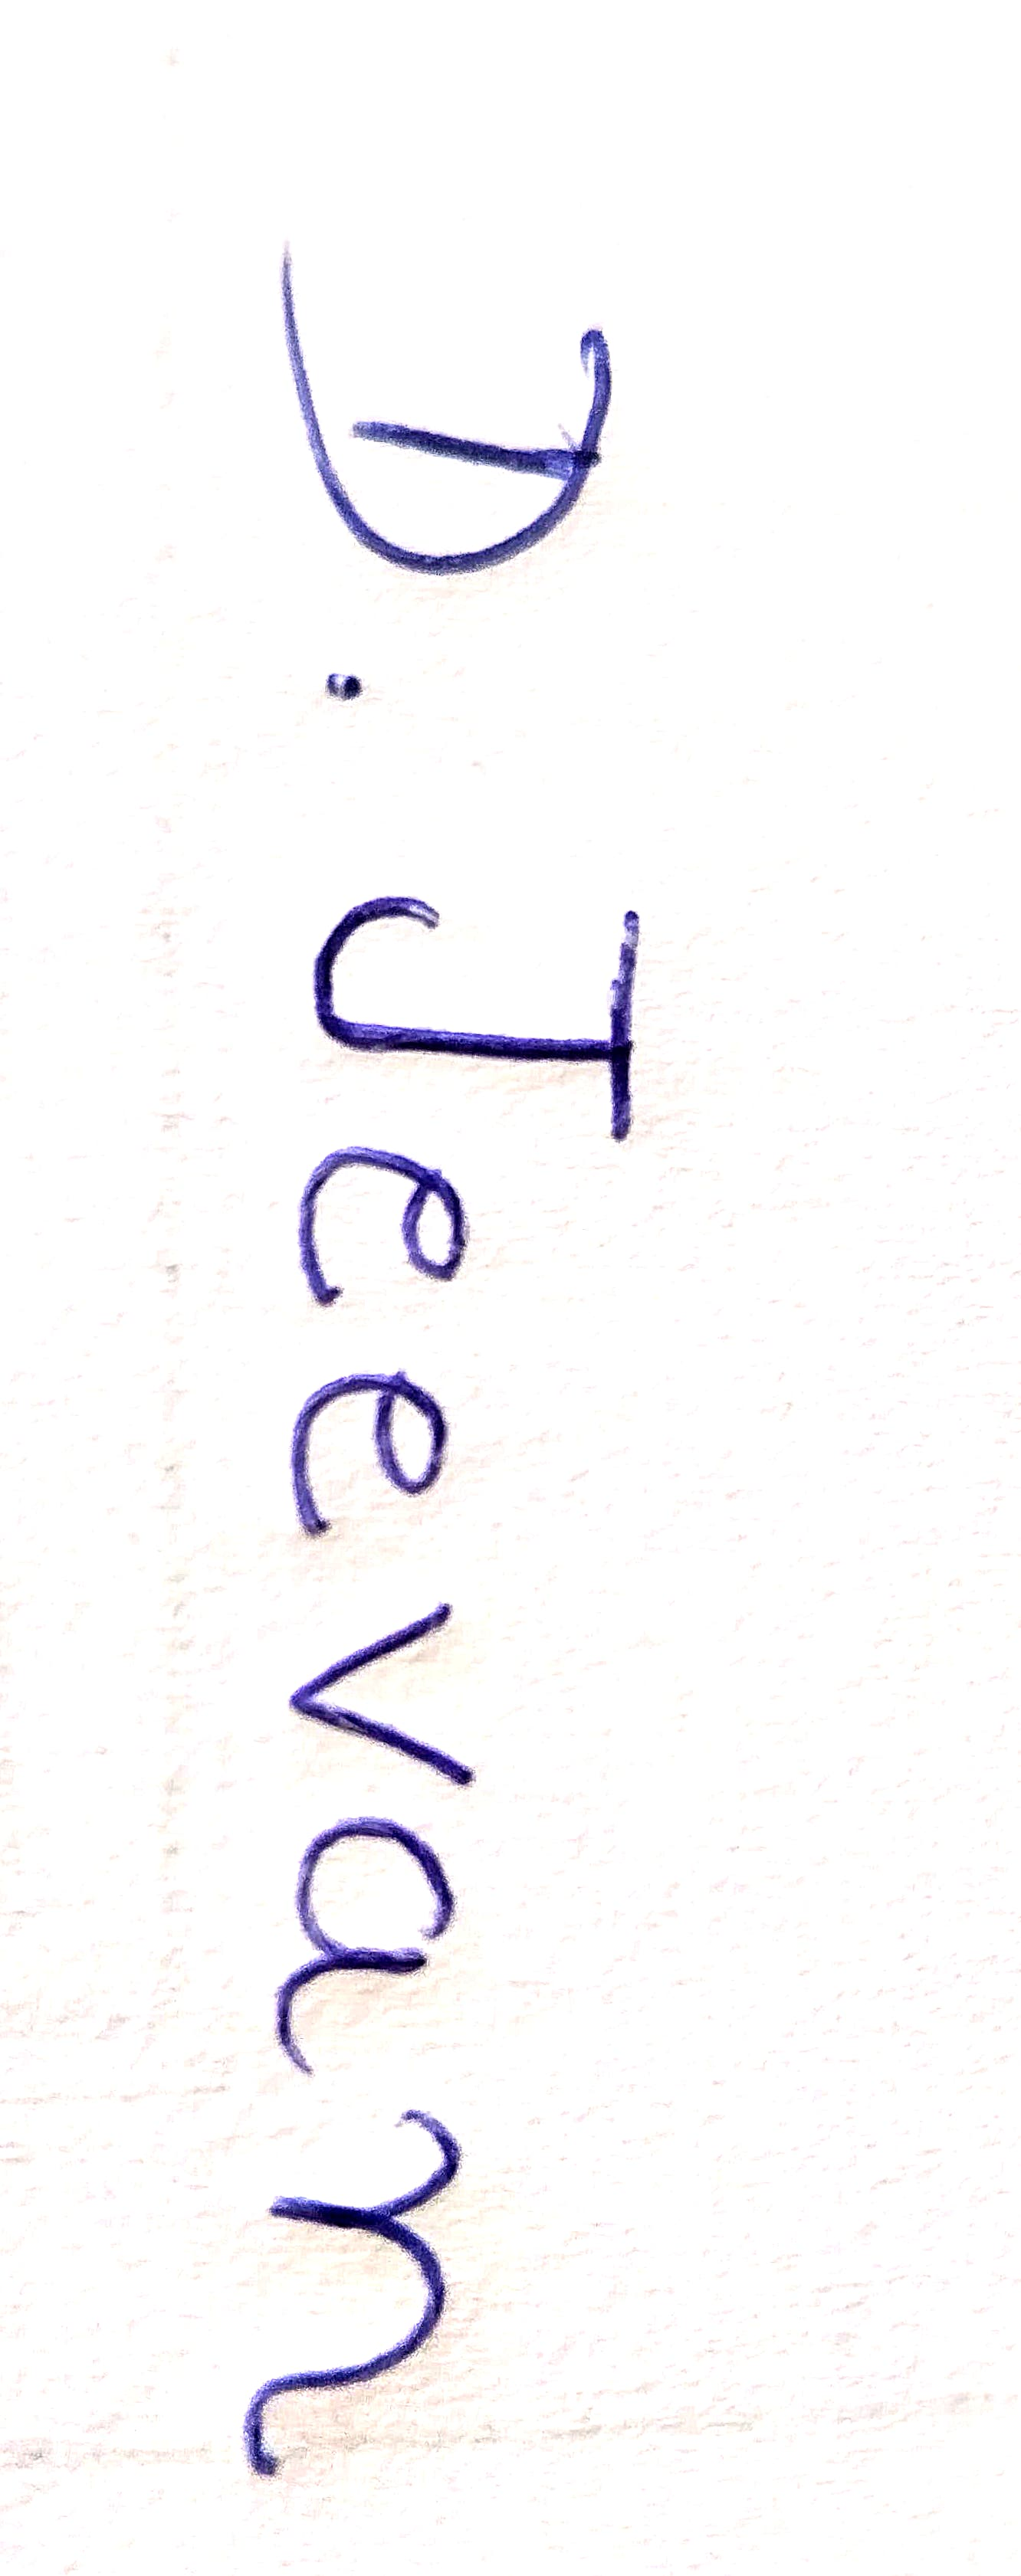 D. Jeevan